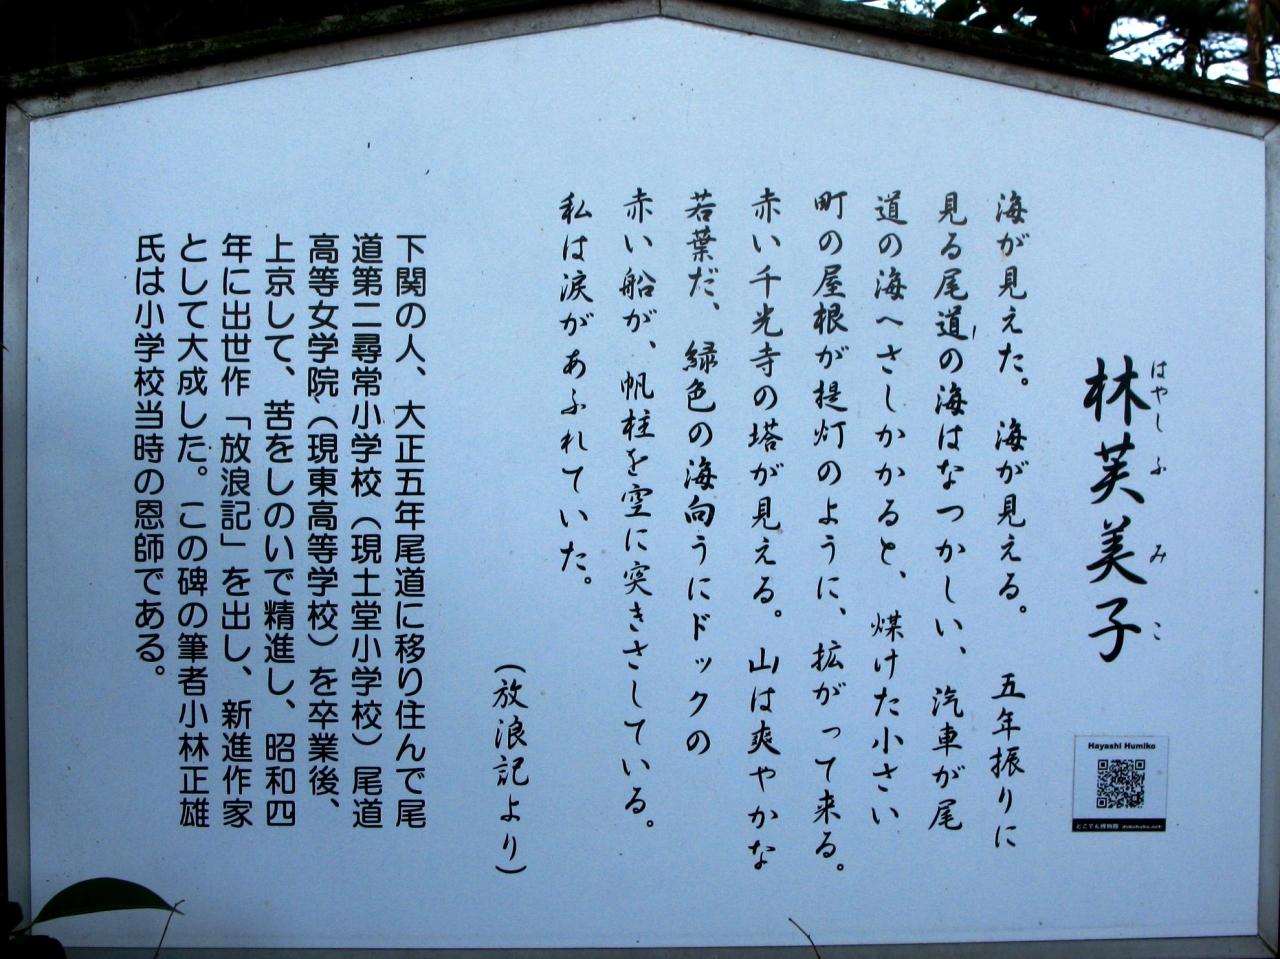 林芙美子
はやしふみこ
Hayashi Humiko
どこでも博物館
海が見えた。海が見える。五年振りに
見る尾道の海はなつかしい、汽車が尾
道の海へさしかかると、煤けた小さい
町の屋根が提灯のように、拡がって来る。
赤い千光寺の塔が見える。山は爽やかな
若葉だ、緑色の海向うにドックの
赤い船が、帆柱を空に突きさしている。
私は涙があふれていた。
(放浪記より)
下関の人、大正五年尾道に移り住んで尾
道第二尋常小学校(現土堂小学校)尾道
高等女学院(現東高等学校)を卒業後、
上京して、苦をしのいで精進し、昭和四
年に出世作「放浪記」を出し、新進作家
として大成した。この碑の筆者小林正雄
氏は小学校当時の恩師である。